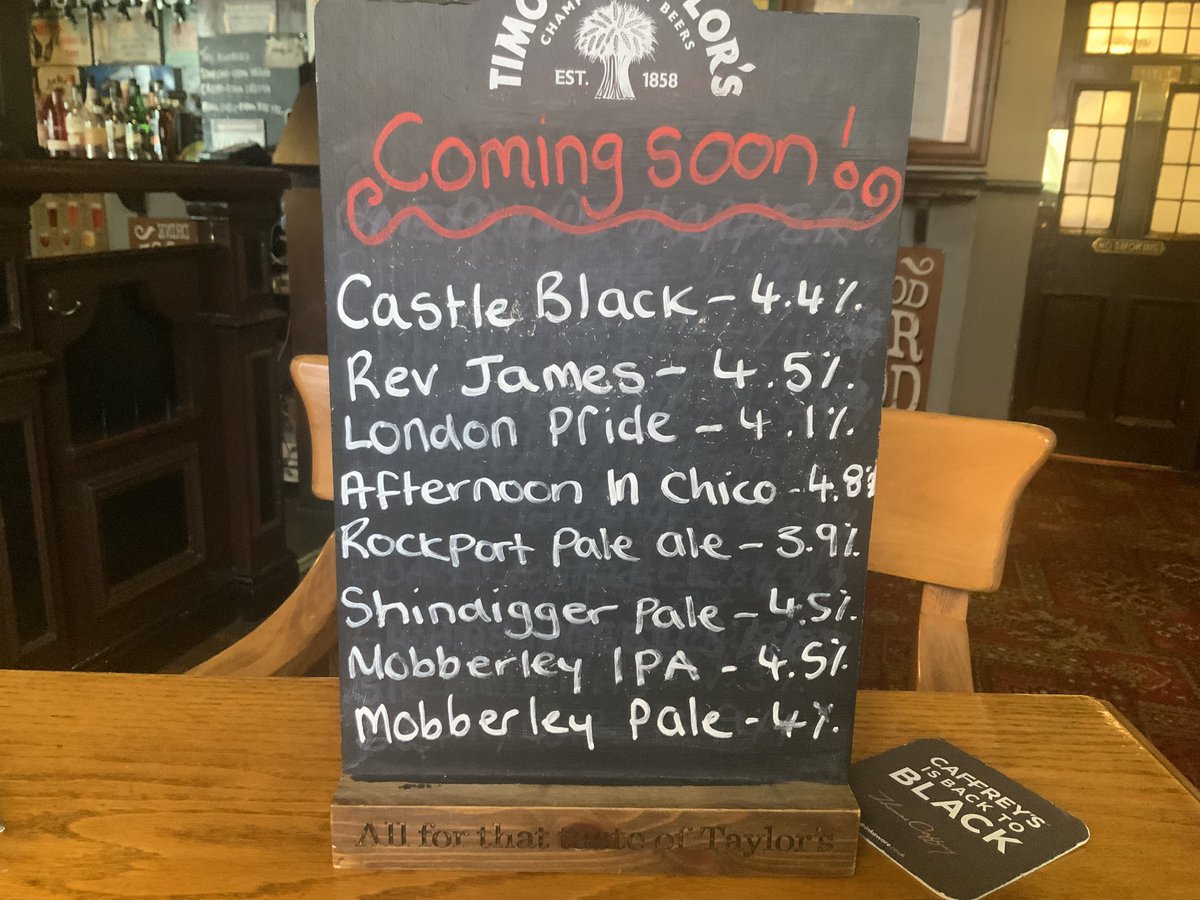 CHAMP BEERS
EST. 1858
Coming soon!
Castle Black - 4.4%
Rev James - 4.5%
London Pride - 4.1%
Afternoon In Chico - 4.8%
Rockport Pale ale - 3.9%
Shindigger Pale - 4.5%
Mobberley IPA - 4.5%
Mobberley Pale - 4%
All for that taste of Taylor's
CAFFREY'S
IS BACK TO
BLACK
NO SMOKING